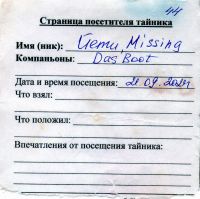 44
Страница посетителя тайника
Имя (ник): Йети, Missing
Компаньоны: Das Boot
Дата и время посещения:
Что взял:
Что положил:
Впечатления от посещения тайника: